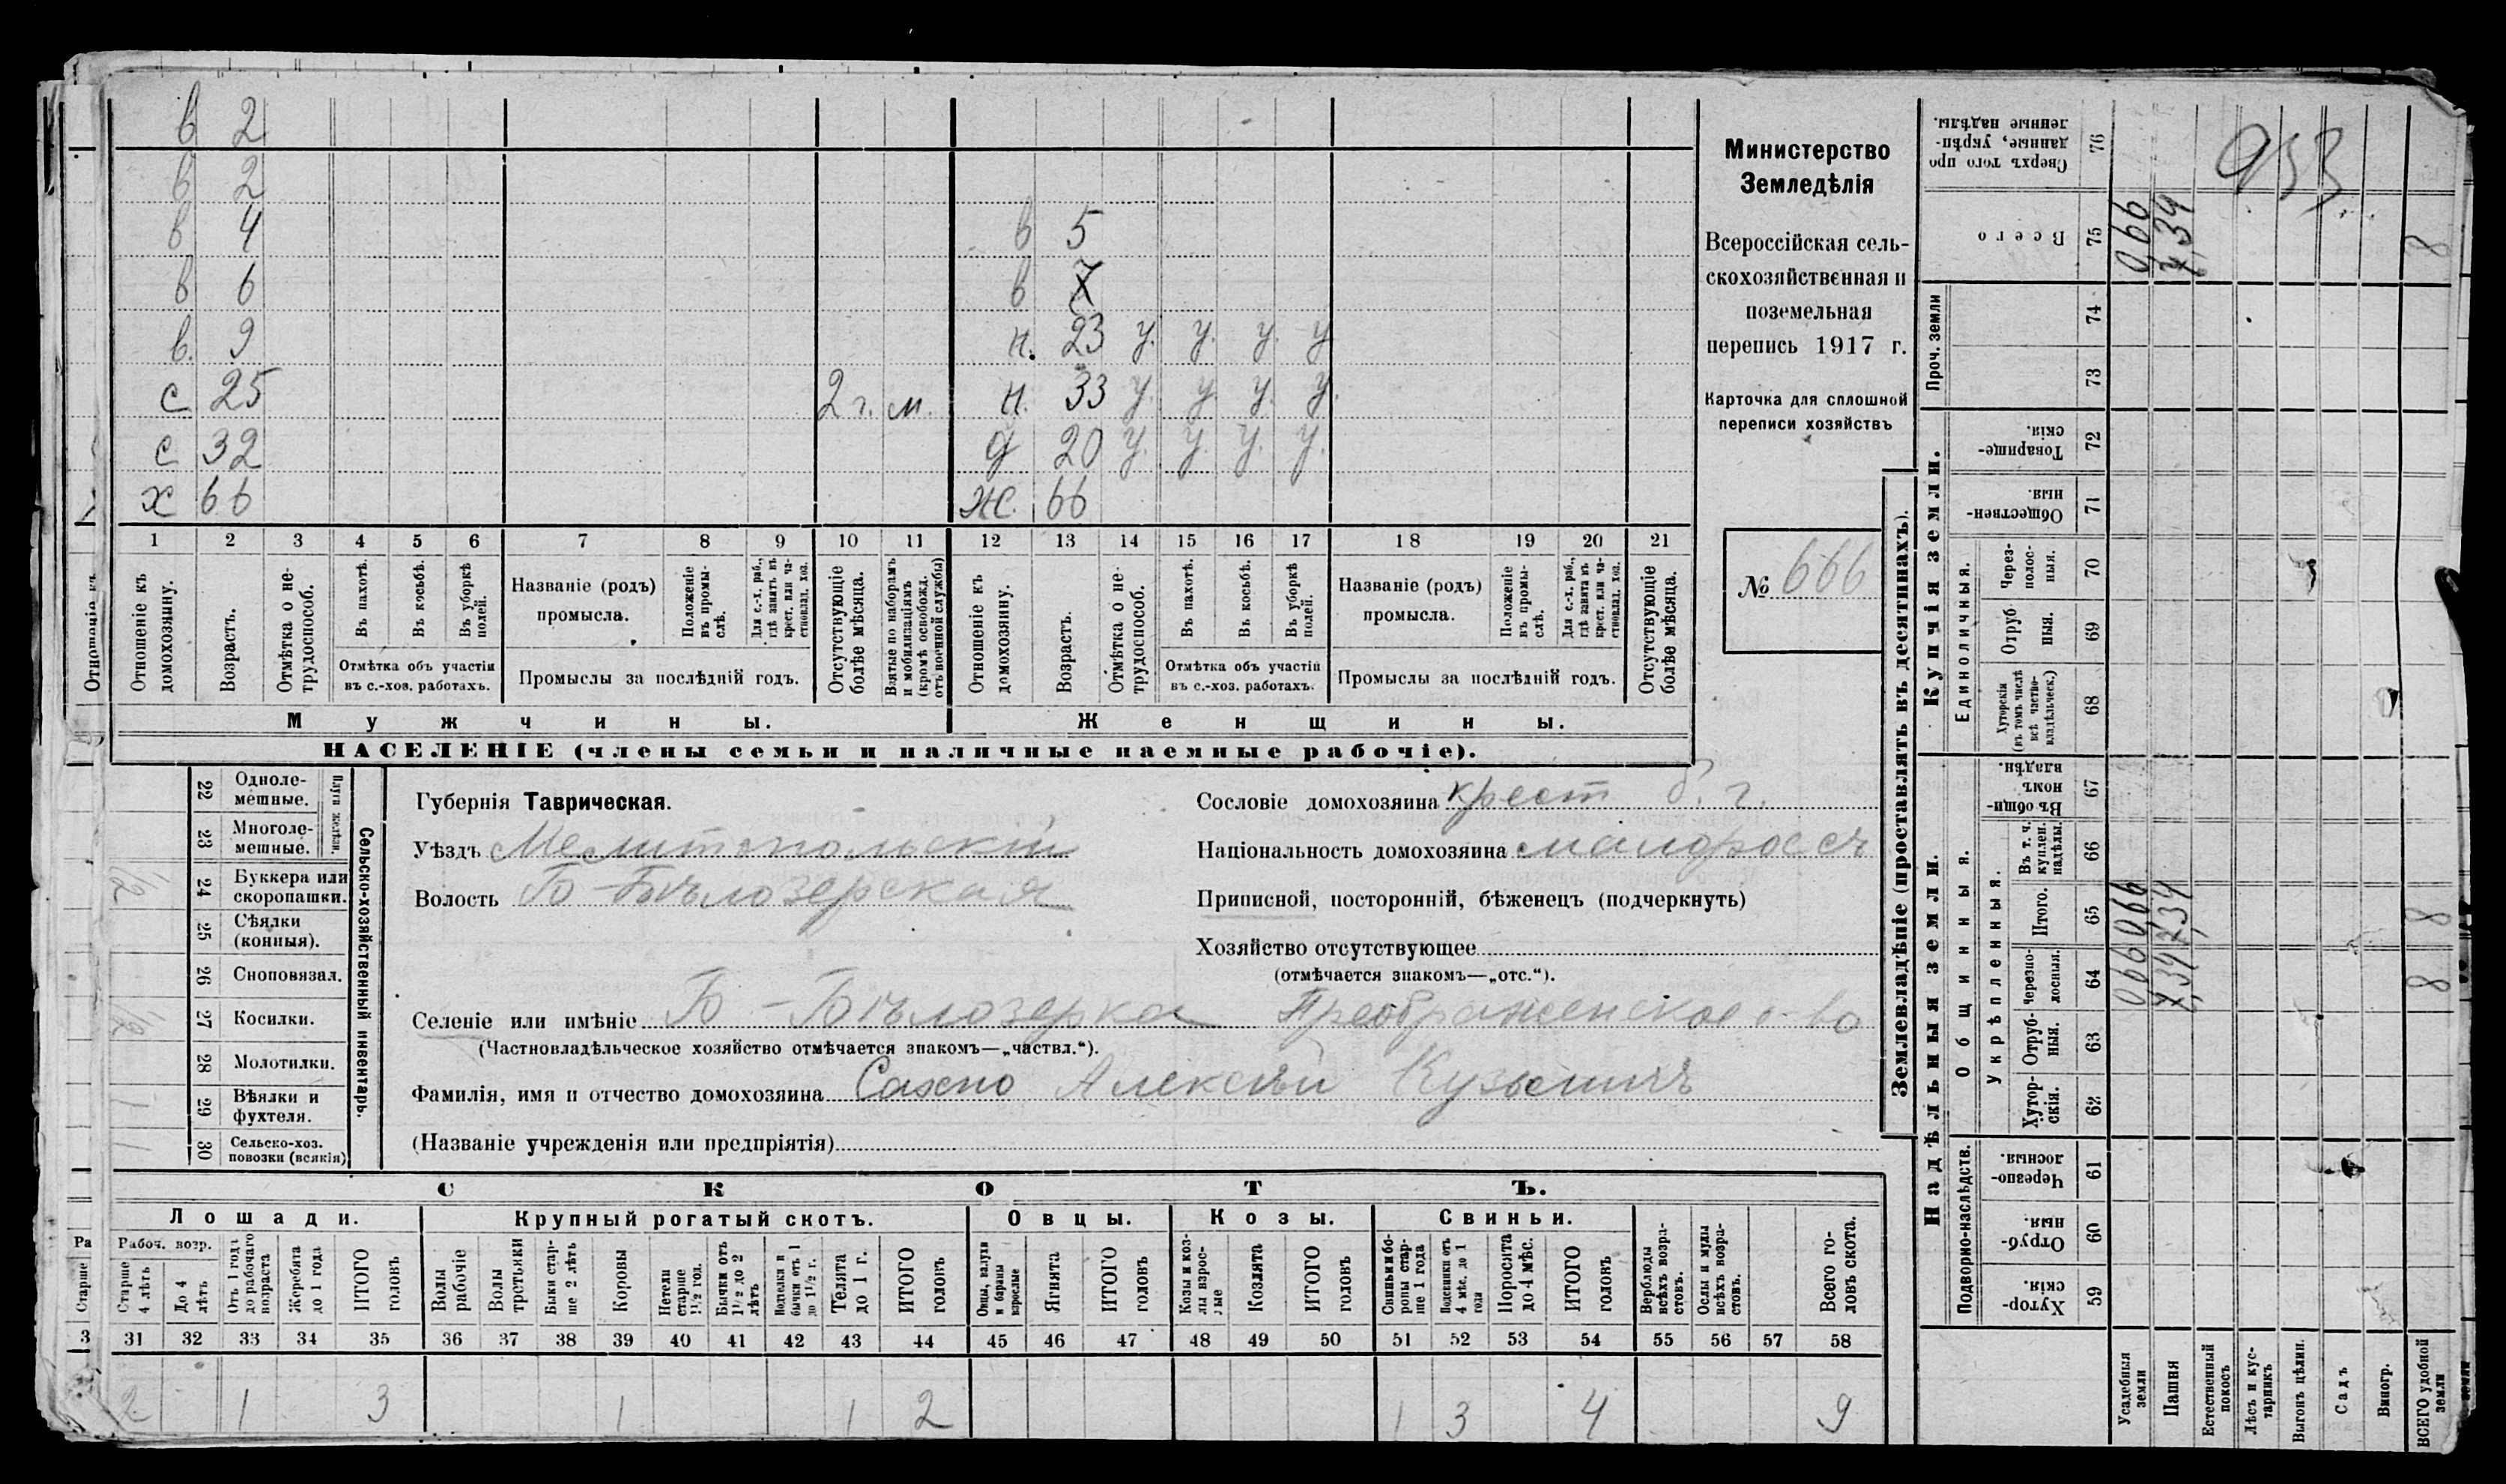 в 2
в 2
в 4 в 5
в 6 в 7
в. 9 н. 23 у. у. у. у
с 25 2 г. м. н. 33 у. у. у. у.
с 32 д 20 у. у. у. у.
х 66 ж. 66
1 2 3 4 5 6 7 8 9 10 11 12 13 14 15 16 17 18 19 20 21
Отношеніе къ домохозяину.
Возрастъ.
Отмѣтка о нетрудоспособ.
Въ пахотѣ.
Въ косьбѣ.
Въ уборкѣ полей.
Отмѣтка объ участіи въ с.-хоз. работахъ.
Названіе (родъ) промысла.
Положеніе въ промыслѣ.
Для с.-х. раб., гдѣ занятъ въ крест. или частновлад. хоз.
Промыслы за послѣдній годъ.
Отсутствующіе болѣе мѣсяца.
Взятые по наборамъ и мобилизаціямъ (кромѣ освобожд. отъ военной службы)
Отношеніе къ домохозяину.
Возрастъ.
Отмѣтка о нетрудоспособ.
Въ пахотѣ.
Въ косьбѣ.
Въ уборкѣ полей.
Отмѣтка объ участіи въ с.-хоз. работахъ.
Названіе (родъ) промысла.
Положеніе въ промыслѣ.
Для с.-х. раб., гдѣ занятъ въ крест. или частновлад. хоз.
Промыслы за послѣдній годъ.
Отсутствующіе болѣе мѣсяца.
Мужчины. Женщины.
НАСЕЛЕНІЕ (члены семьи и наличные наемные рабочіе).
Министерство
Земледѣлія
Всероссійская сель-
скохозяйственная и
поземельная
перепись 1917 г.
Карточка для сплошной
переписи хозяйствъ
№ 666
Сельско-хозяйственный инвентарь.
Плуги желѣзн.
22 Одноле-
мешные.
23 Многоле-
мешные.
24 Буккера или
скоропашки. 1/2
25 Сѣялки
(конныя).
26 Сноповязал.
27 Косилки. 1/2
28 Молотилки.
29 Вѣялки и
фухтеля. 1
30 Сельско-хоз.
повозки (всякія) 1
Губернія Таврическая.
Уѣздъ Мелитопольскій
Волость Б-Бѣлозерская
Сословіе домохозяина крест б. г.
Національность домохозяина малороссъ
Приписной, посторонній, бѣженецъ (подчеркнуть)
Хозяйство отсутствующее
(отмѣчается знакомъ—„отс.“).
Селеніе или имѣніе Б-Бѣлозерка Преображенское о-во
(Частновладѣльческое хозяйство отмѣчается знакомъ—„частвл.“).
Фамилія, имя и отчество домохозяина Сахно Алексѣй Кузьмичъ
(Названіе учрежденія или предпріятія)
СКОТЪ.
Лошади. Крупный рогатый скотъ. Овцы. Козы. Свиньи.
Рабоч. возр.
Старше 4 лѣтъ
До 4 лѣтъ
Отъ 1 года до рабочаго возраста
Жеребята до 1 года
ИТОГО головъ
Волы рабочіе
Волы третьяки
Быки старше 2 лѣтъ
Коровы
Нетели старше 1½ год.
Бычки отъ 1½ до 2 лѣтъ
Телята до 1 г.
ИТОГО головъ
Овцы, валухи и бараны взрослые
Ягнята
ИТОГО головъ
Козы и козлы взрослые
Козлята
ИТОГО головъ
Свиньи и боровы старше 1 года
Подсвинки отъ 4 мѣс. до 1 года
Поросята до 4 мѣс.
ИТОГО головъ
Верблюды всѣхъ возрастовъ.
Ослы и мулы всѣхъ возрастовъ.
Всего головъ скота.
31 32 33 34 35 36 37 38 39 40 41 42 43 44 45 46 47 48 49 50 51 52 53 54 55 56 57 58
2 1 3 1 1 2 1 3 4 9
Землевладѣніе (проставлять въ десятинахъ).
Надѣльныя земли. Купчія земли. Проч. земли
Подворно-наслѣдств.
Общинныя.
Укрѣпленныя.
Единоличныя.
59 Хуторскія
60 Отрубныя
61 Черезполосныя.
62 Хуторскія.
63 Отрубныя.
64 Черезполосныя. 066 7,34 8
65 Итого. 066 7,34 8
66 Въ т. ч. куплен. надѣлы.
67 Въ общинномъ владѣн.
68 Хуторскія (въ томъ числѣ всѣ частновладѣльческ.)
69 Отрубныя.
70 Черезполосныя.
71 Общественныя.
72 Товарищескія.
73
74
75 Всего 066 7,34 8
76 Сверхъ того проданные, укрѣпленные надѣлы.
933
Усадебныя земли
Пашня
Естественный покосъ
Лѣсъ и кустарникъ
Выгонъ цѣлин.
Садъ
Виногр.
ВСЕГО удобной земли